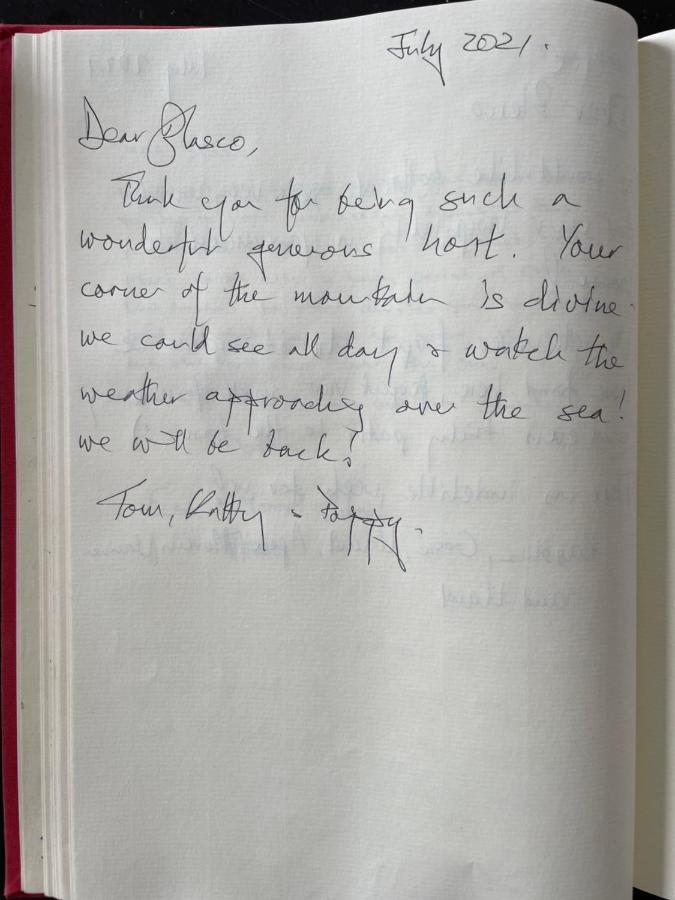 July 2021.
Dear Blasco,
Thank you for being such a
wonderful generous host. Your
corner of the mountain is divine.
we could see all day & watch the
weather approaching over the sea!
we will be back!
Tom, Kathy & Poppy.